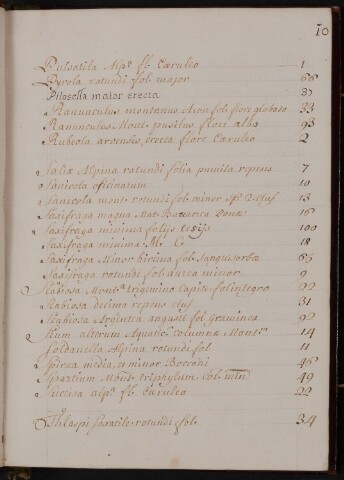 10
Pulsatila Alpa. fl. Cæruleo 1
Pyrola rotundi fol. major 66
Pilosella maior erecta 37
Ranunculus montanus Acon. foli flore globoso 33
Ranunculus Mont. pusilus flore albo 93
Rubeola arvensis, erecta flore Caruleo 2
Salix Alpina rotundi folia pumila repens 7
Sanicola oficinarum 10
Sanicola mont. rotundi fol. minor 13
Saxifraga magna Mat. Donæ 16
Saxifraga minima folijs 100
Saxifraga minima M. C 18
Saxifraga Minor hircina fol. Sanguisorbæ 65
Saxifraga rotundi fol. aurea minor 9
Scabiosa Monta. trigmino capite fol. integro 22
Scabiosa decima repens 31
Scabiosa Argentea angusti fol. graminea 92
Sium alterum Aquatic. columnæ Mont. 14
Soldanella Alpina rotundi fol. 11
Spirea media, et minor Bocconi 46
Spartium Mont. triphylum Col. 49
Succisa alpa. fl. Caruleo 22
Thlaspi Saxatile rotundi fol. 34